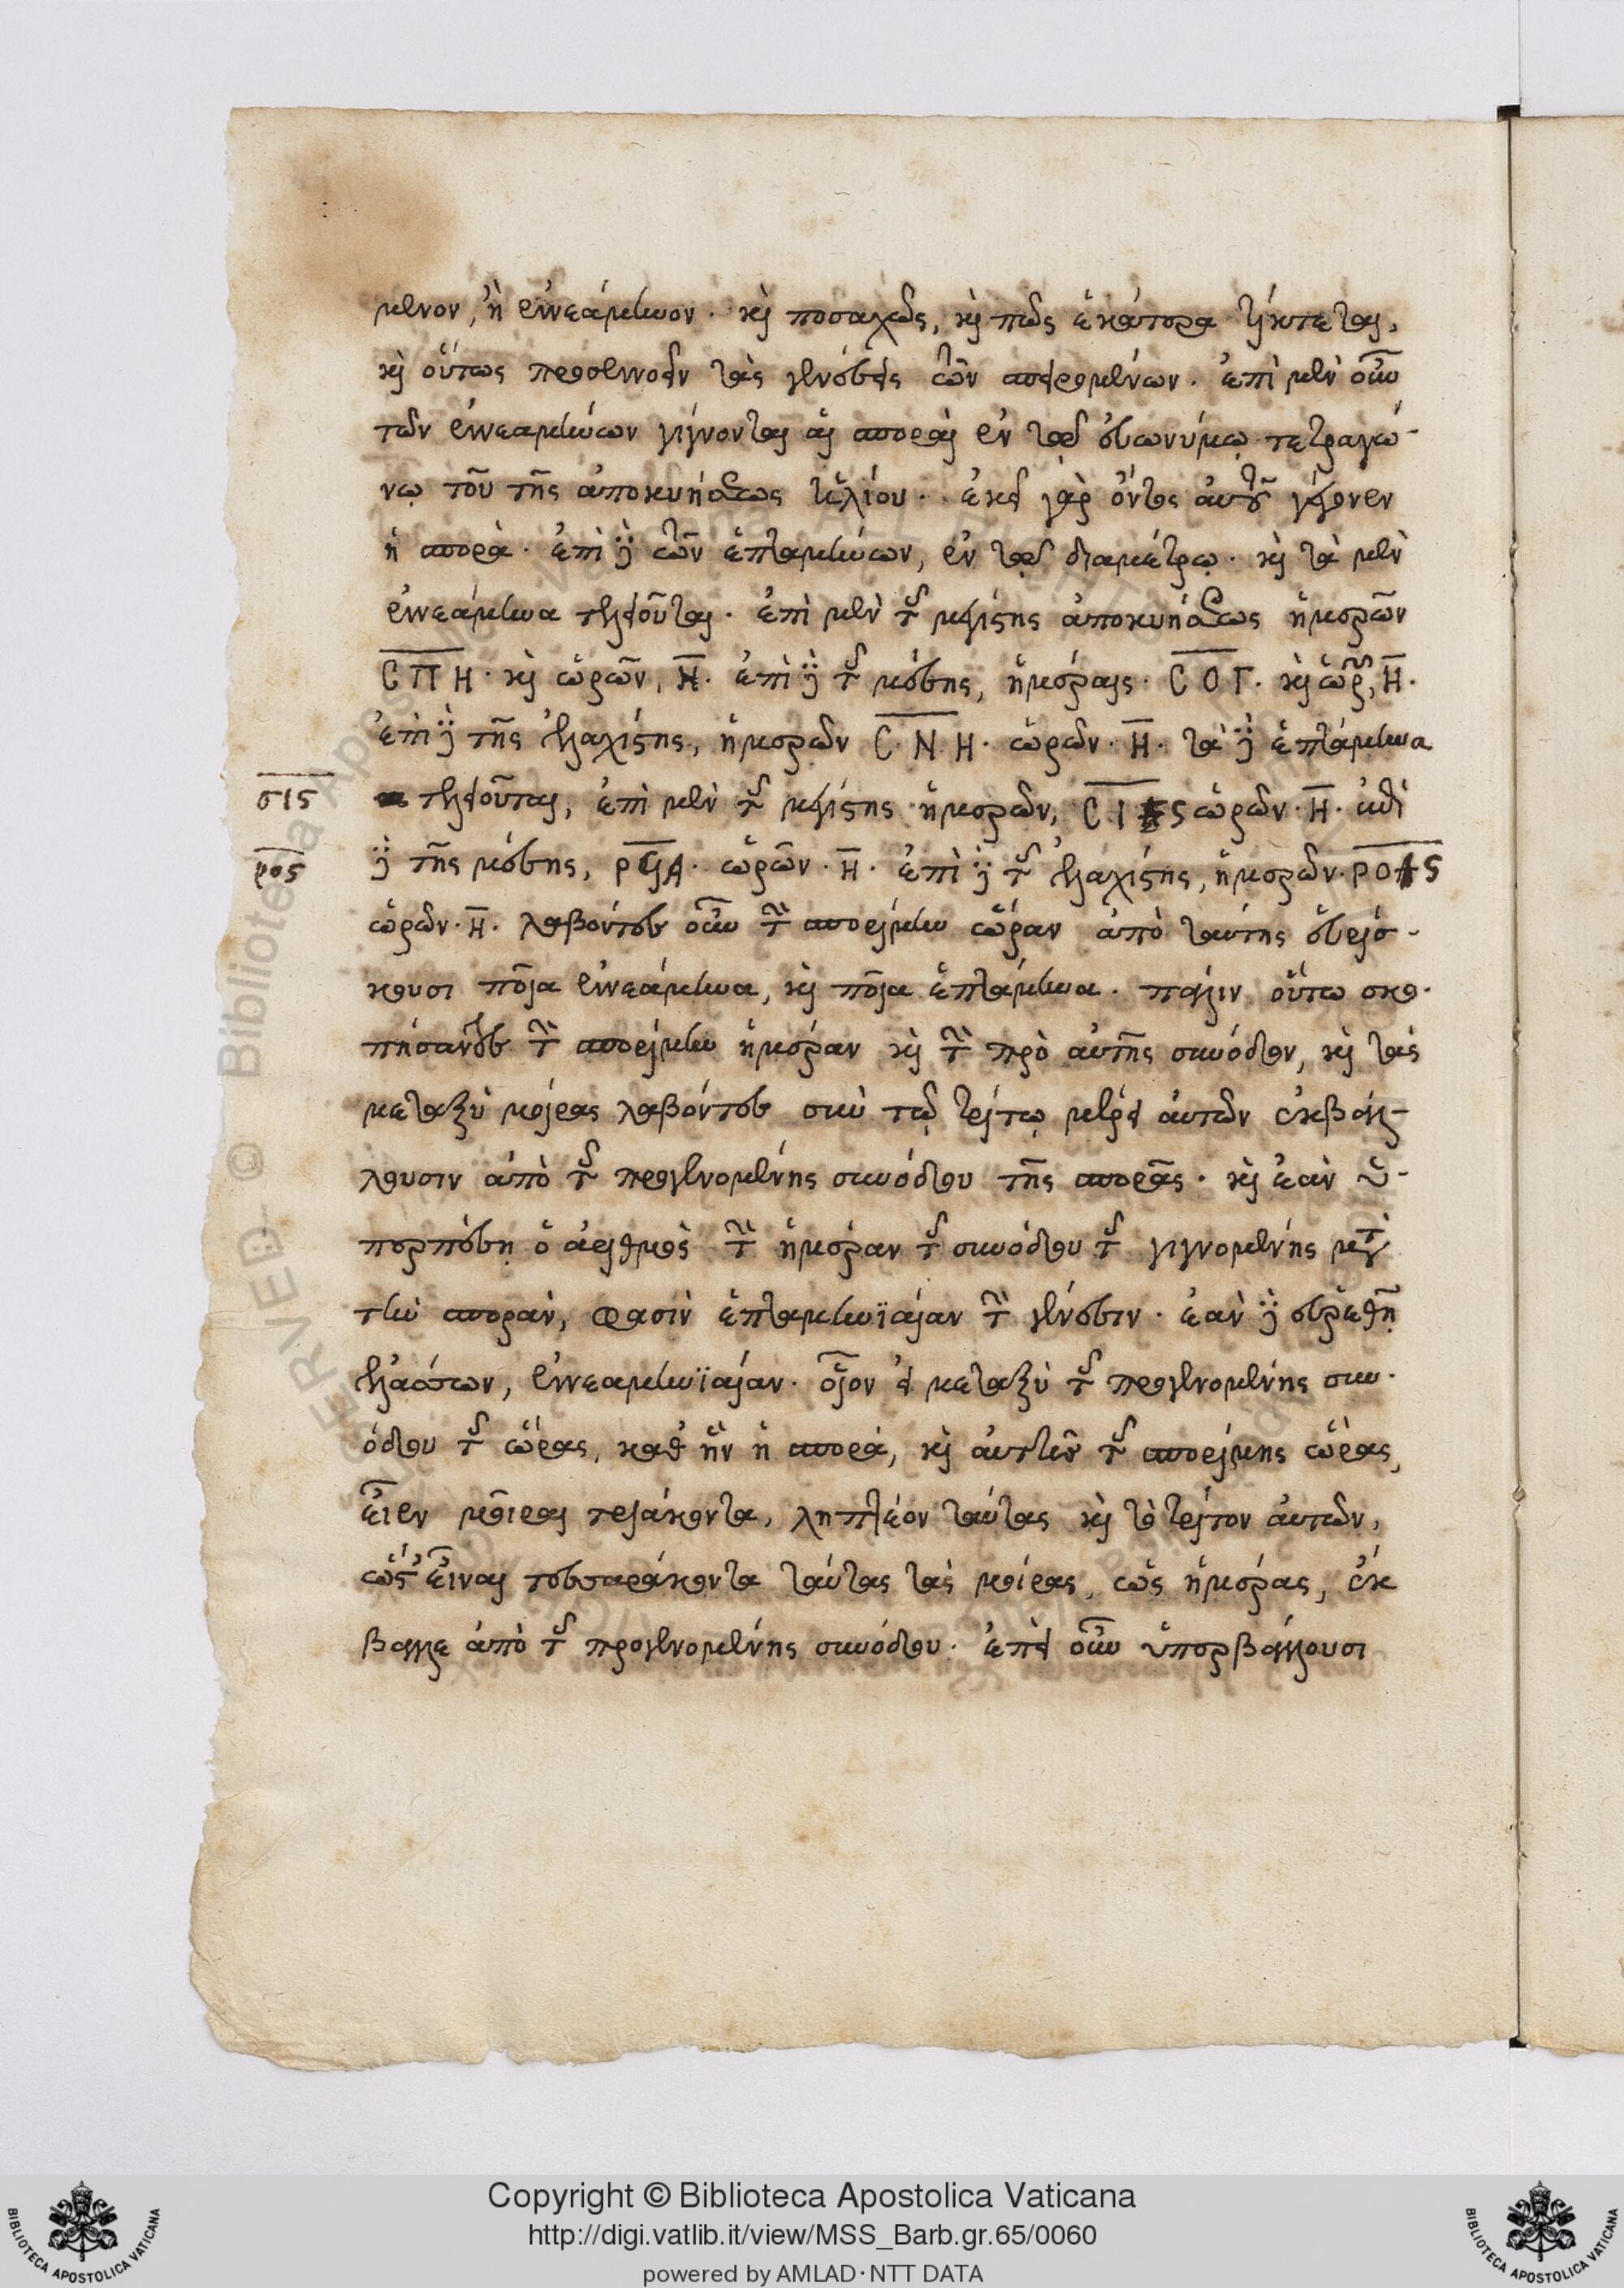 μενον, ἢ ἐννεάμηνον. καὶ ποσαχῶς, καὶ πῶς ἑκάτερα τίκτεται,
καὶ οὕτως προσεννοεῖν τὰς γενέσεις τῶν σπειρομένων. ἐπὶ μὲν οὖν
τῶν ἐννεαμήνων γίγνονται αἱ σποραὶ ἐν τῷ εὐωνύμῳ τετραγώ-
νῳ τοῦ τῆς ἀποκυήσεως ἡλίου. ἐκεῖ γὰρ ὄντος αὐτοῦ γέγονεν
ἡ σπορὰ. ἐπὶ δὲ τῶν ἑπταμήνων, ἐν τῷ διαμέτρῳ. καὶ τὰ μὲν
ἐννεάμηνα τελειοῦται. ἐπὶ μὲν τῆς μεγίστης ἀποκυήσεως ἡμερῶν
ϹΠΗ. καὶ ὡρῶν, Η. ἐπὶ δὲ τῆς μέσης, ἡμέραις. ϹΟΓ. καὶ ὡρῶν, Η.
ἐπὶ δὲ τῆς ἐλαχίστης, ἡμερῶν Ϲ.Ν.Η. ὡρῶν. Η. τὰ δὲ ἑπτάμηνα
σις
τελειοῦται, ἐπὶ μὲν τῆς μεγίστης ἡμερῶν, Ϲ.Ι.ϛ ὡρῶν. Η. ἐπὶ
ρος
δὲ τῆς μέσης, ΡϞΑ. ὡρῶν. Η. ἐπὶ δὲ τῆς ἐλαχίστης, ἡμερῶν. ΡΟϛ
ὡρῶν. Η. λαβόντες οὖν τὴν σπορίμην ὥραν ἀπὸ ταύτης εὑρίσ-
κουσι ποῖα ἐννεάμηνα, καὶ ποῖα ἑπτάμηνα. πάλιν οὕτω σκο-
πήσαντες τὴν σπορίμην ἡμέραν καὶ τὴν πρὸ αὐτῆς σύνοδον, καὶ τὰς
μεταξὺ μοίρας λαβόντες σὺν τῷ τρίτῳ μέρει αὐτῶν ἐκβάλ-
λουσιν ἀπὸ τῆς προγενομένης συνόδου τῆς σπορᾶς. καὶ ἐὰν ὑ-
περπέσῃ ὁ ἀριθμὸς τὴν ἡμέραν τῆς συνόδου τῆς γιγνομένης μετὰ
τὴν σποράν, φασὶν ἑπταμηνϊαίαν τὴν γένεσιν. ἐὰν δὲ εὑρεθῇ
ἐλάσσων, ἐννεαμηνϊαίαν. οἷον εἰ μεταξὺ τῆς προγενομένης συν-
όδου τῆς ὥρας, καθ' ἣν ἡ σπορά, καὶ αὐτῆς τῆς σπορίμης ὥρας,
εἶεν μοῖραι τριάκοντα, ληπτέον ταύτας καὶ τὸ τρίτον αὐτῶν,
ὥστ' εἶναι τεσσαράκοντα ταύτας τὰς μοίρας, ὡς ἡμέρας, ἐκ
βαλλε ἀπὸ τῆς προγενομένης συνόδου. ἐπεὶ οὖν ὑπερβάλλουσι
Copyright © Biblioteca Apostolica Vaticana
http://digi.vatlib.it/view/MSS_Barb.gr.65/0060
powered by AMLAD·NTT DATA